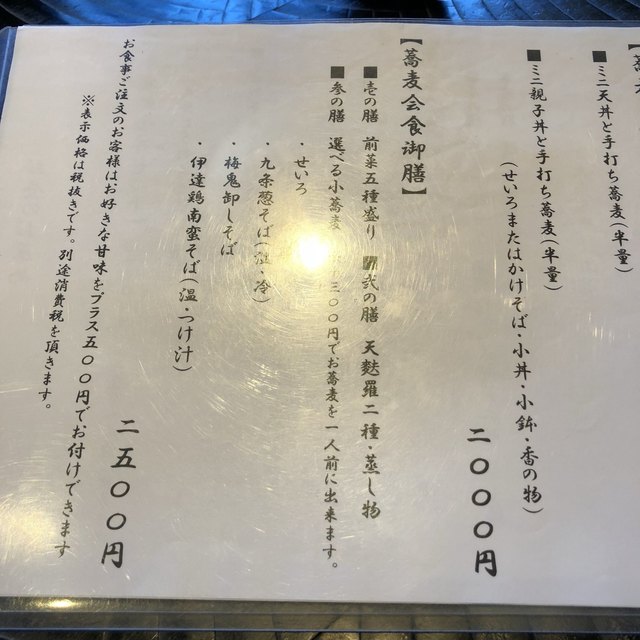 ■ミニ天丼と手打ち蕎麦(半量)
■ミニ親子丼と手打ち蕎麦(半量)
(せいろまたはかけそば・小丼・小鉢・香の物)
二〇〇〇円
【蕎麦会食御膳】
■壱の膳 前菜五種盛り ■弐の膳 天麩羅二種・蒸し物
■参の膳 選べる小蕎麦 三〇〇円でお蕎麦を一人前に出来ます。
・せいろ
・九条葱そば(温・冷)
・梅鬼卸しそば
・伊達鶏南蛮そば(温・つけ汁)
二五〇〇円
お食事ご注文のお客様はお好きな甘味をプラス五〇〇円でお付けできます
※表示価格は税抜きです。別途消費税を頂きます。